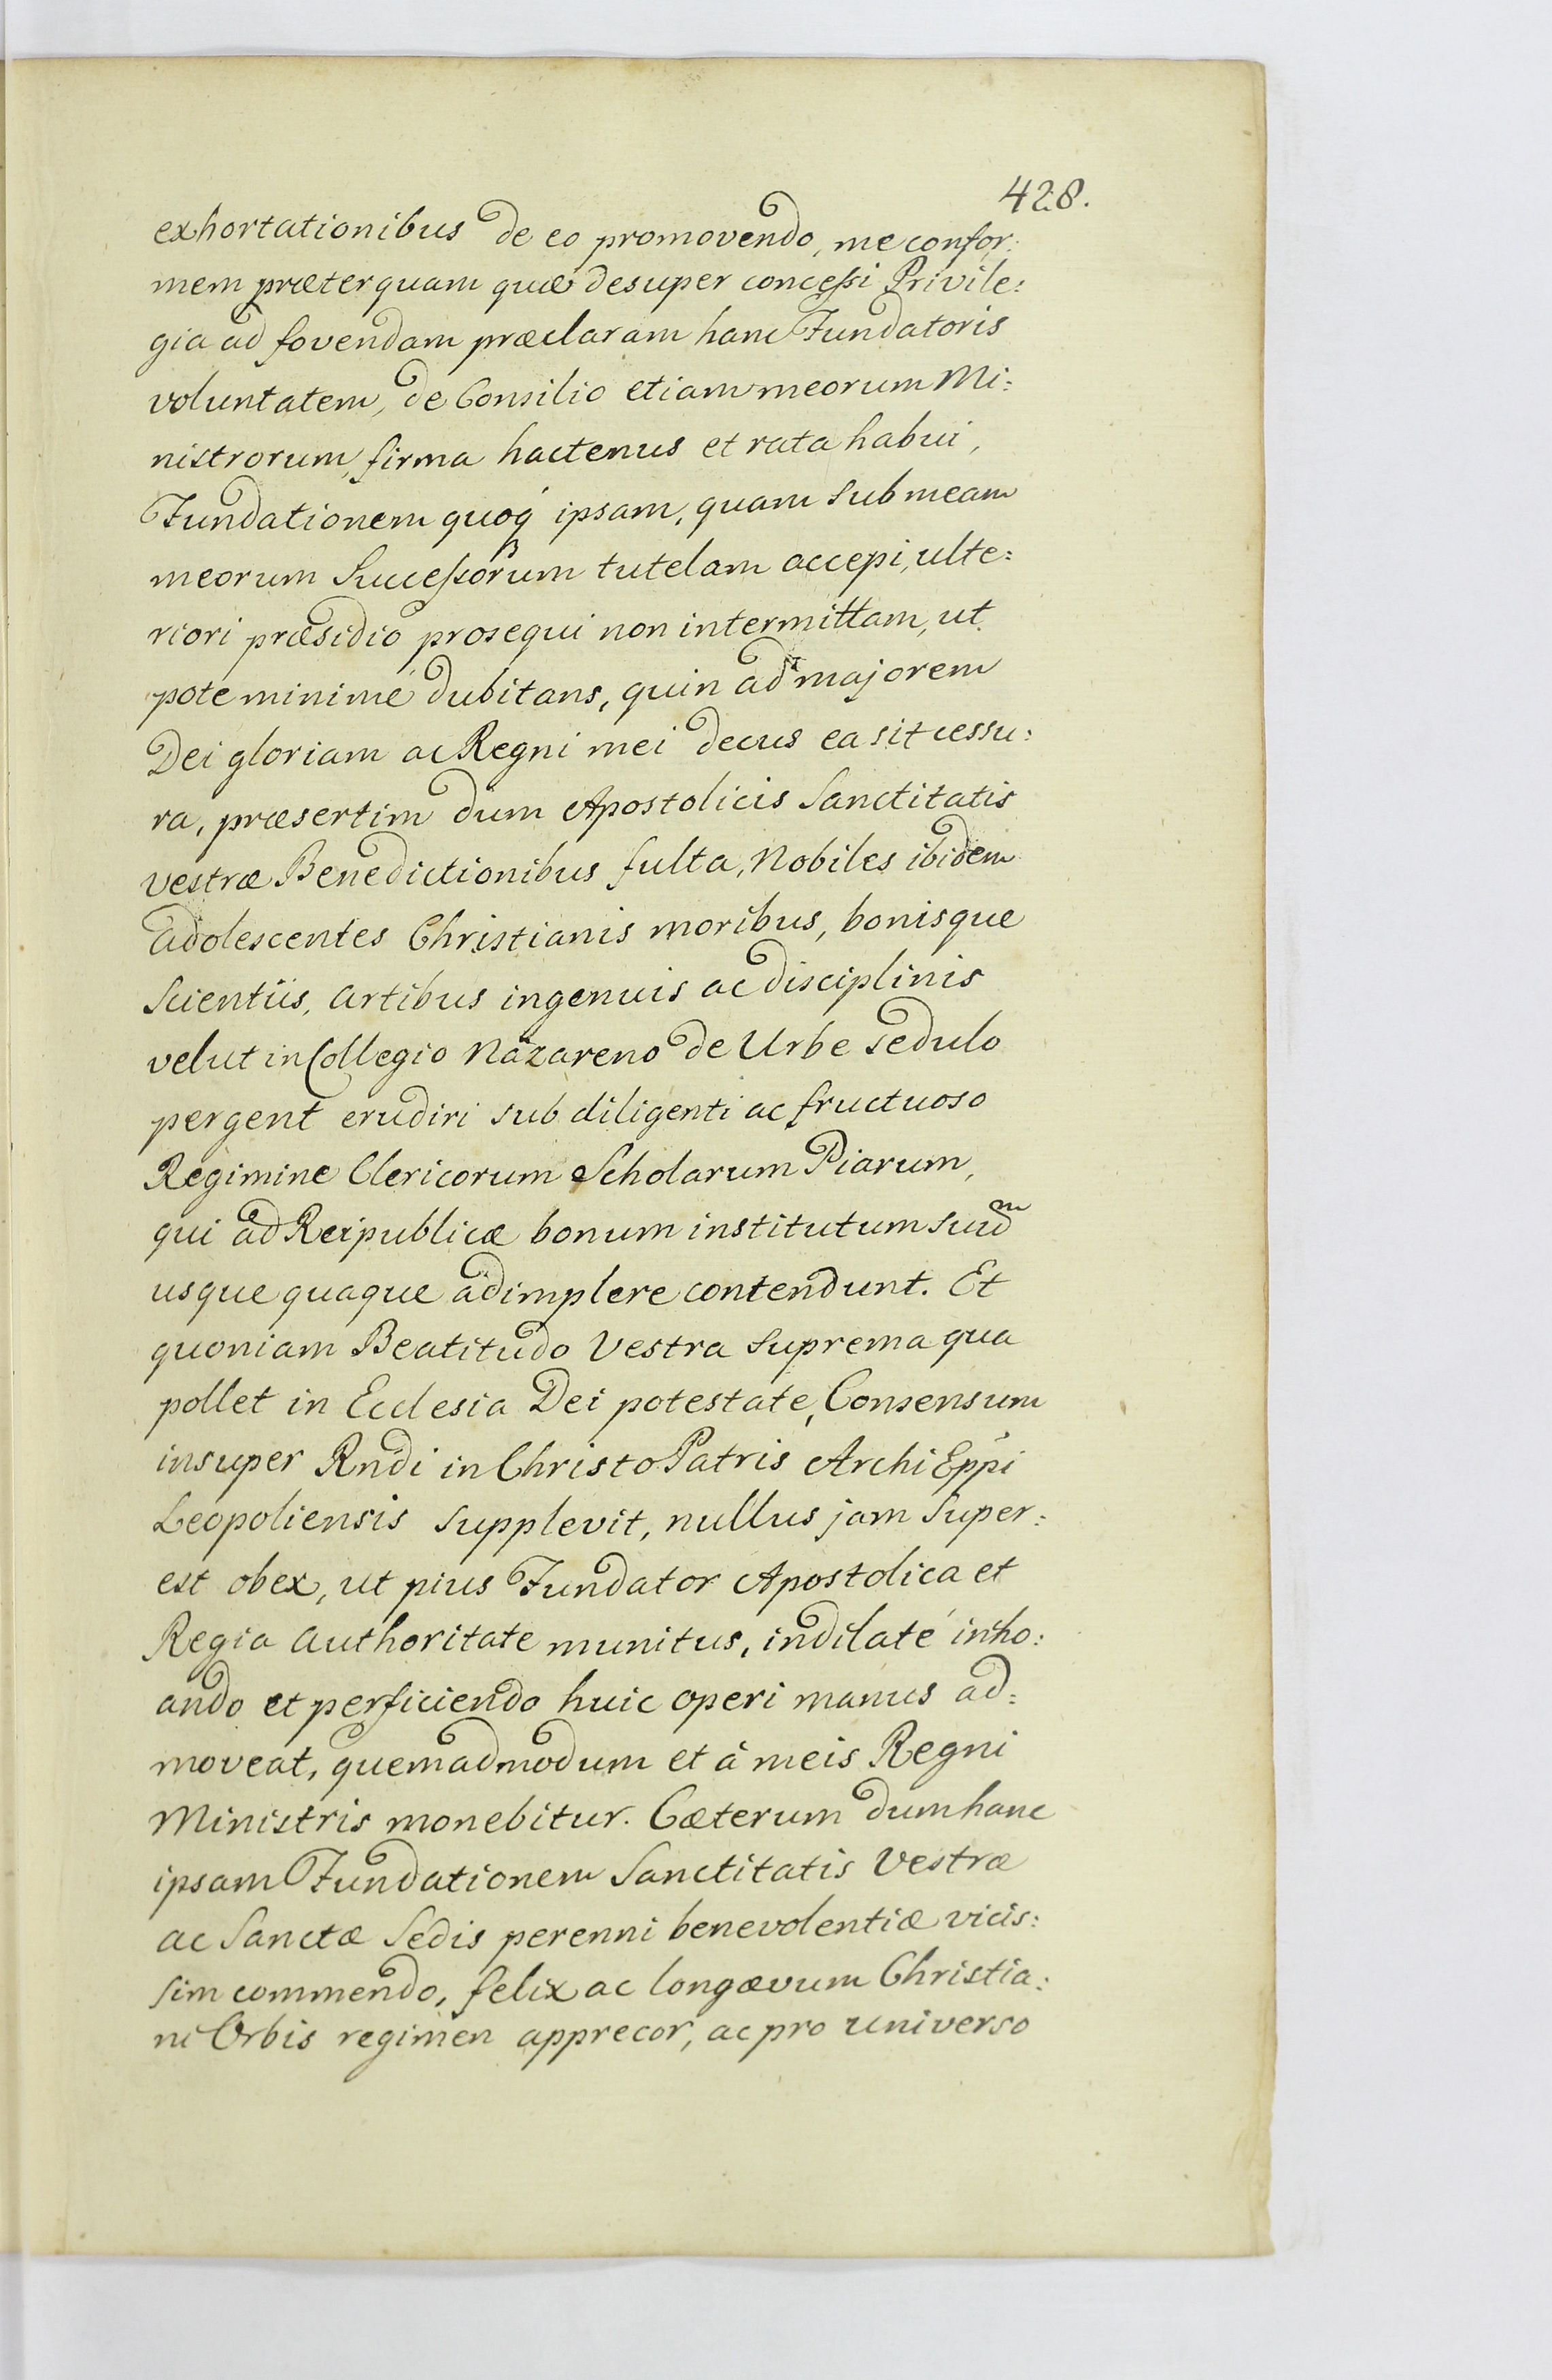 428.
exhortationibus de eo promovendo, me confor:
mem præterquam quæ desuper concessi Privile:
gia ad fovendam præclaram hanc Fundatoris
voluntatem, de Consilio etiam meorum Mi:
nistrorum, firma hactenus et rata habui,
Fundationem quoq́ ipsam, quam sub meam
meorum Successorum tutelam accepi, ulte:
riori præsidio prosequi non intermittam, ut
pote minimé dubitans, quin ad majorem
Dei gloriam ac Regni mei decus ea sit cessu:
ra, præsertim dum Apostolicis Sanctitatis
vestræ Benedictionibus fulta, Nobiles ibidem
adolescentes Christianis moribus, bonisque
Scientiis, artibus ingenuis ac disciplinis
velut in Collegio Nazareno de Urbe sedulo
pergent erudiri sub diligenti ac fructuoso
Regimine Clericorum Scholarum Piarum,
qui ad Reipublicæ bonum institutum suū
usque quaque adimplere contendunt. Et
quoniam Beatitudo Vestra suprema qua
pollet in Ecclesia Dei potestate, Consensum
insuper Rndi in Christo Patris Archi Eppi
Leopoliensis supplevit, nullus jam super:
est obex, ut pius Fundator Apostolica et
Regia authoritate munitus, indilaté incho:
ando et perficiendo huic operi manus ad:
moveat, quemadmodum et à meis Regni
Ministris monebitur. Cæterum dum hanc
ipsam Fundationem Sanctitatis Vestræ
ac Sanctæ Sedis perenni benevolentiæ vicis:
sim commendo, felix ac longævum Christia:
ni Orbis regimen apprecor, ac pro universo